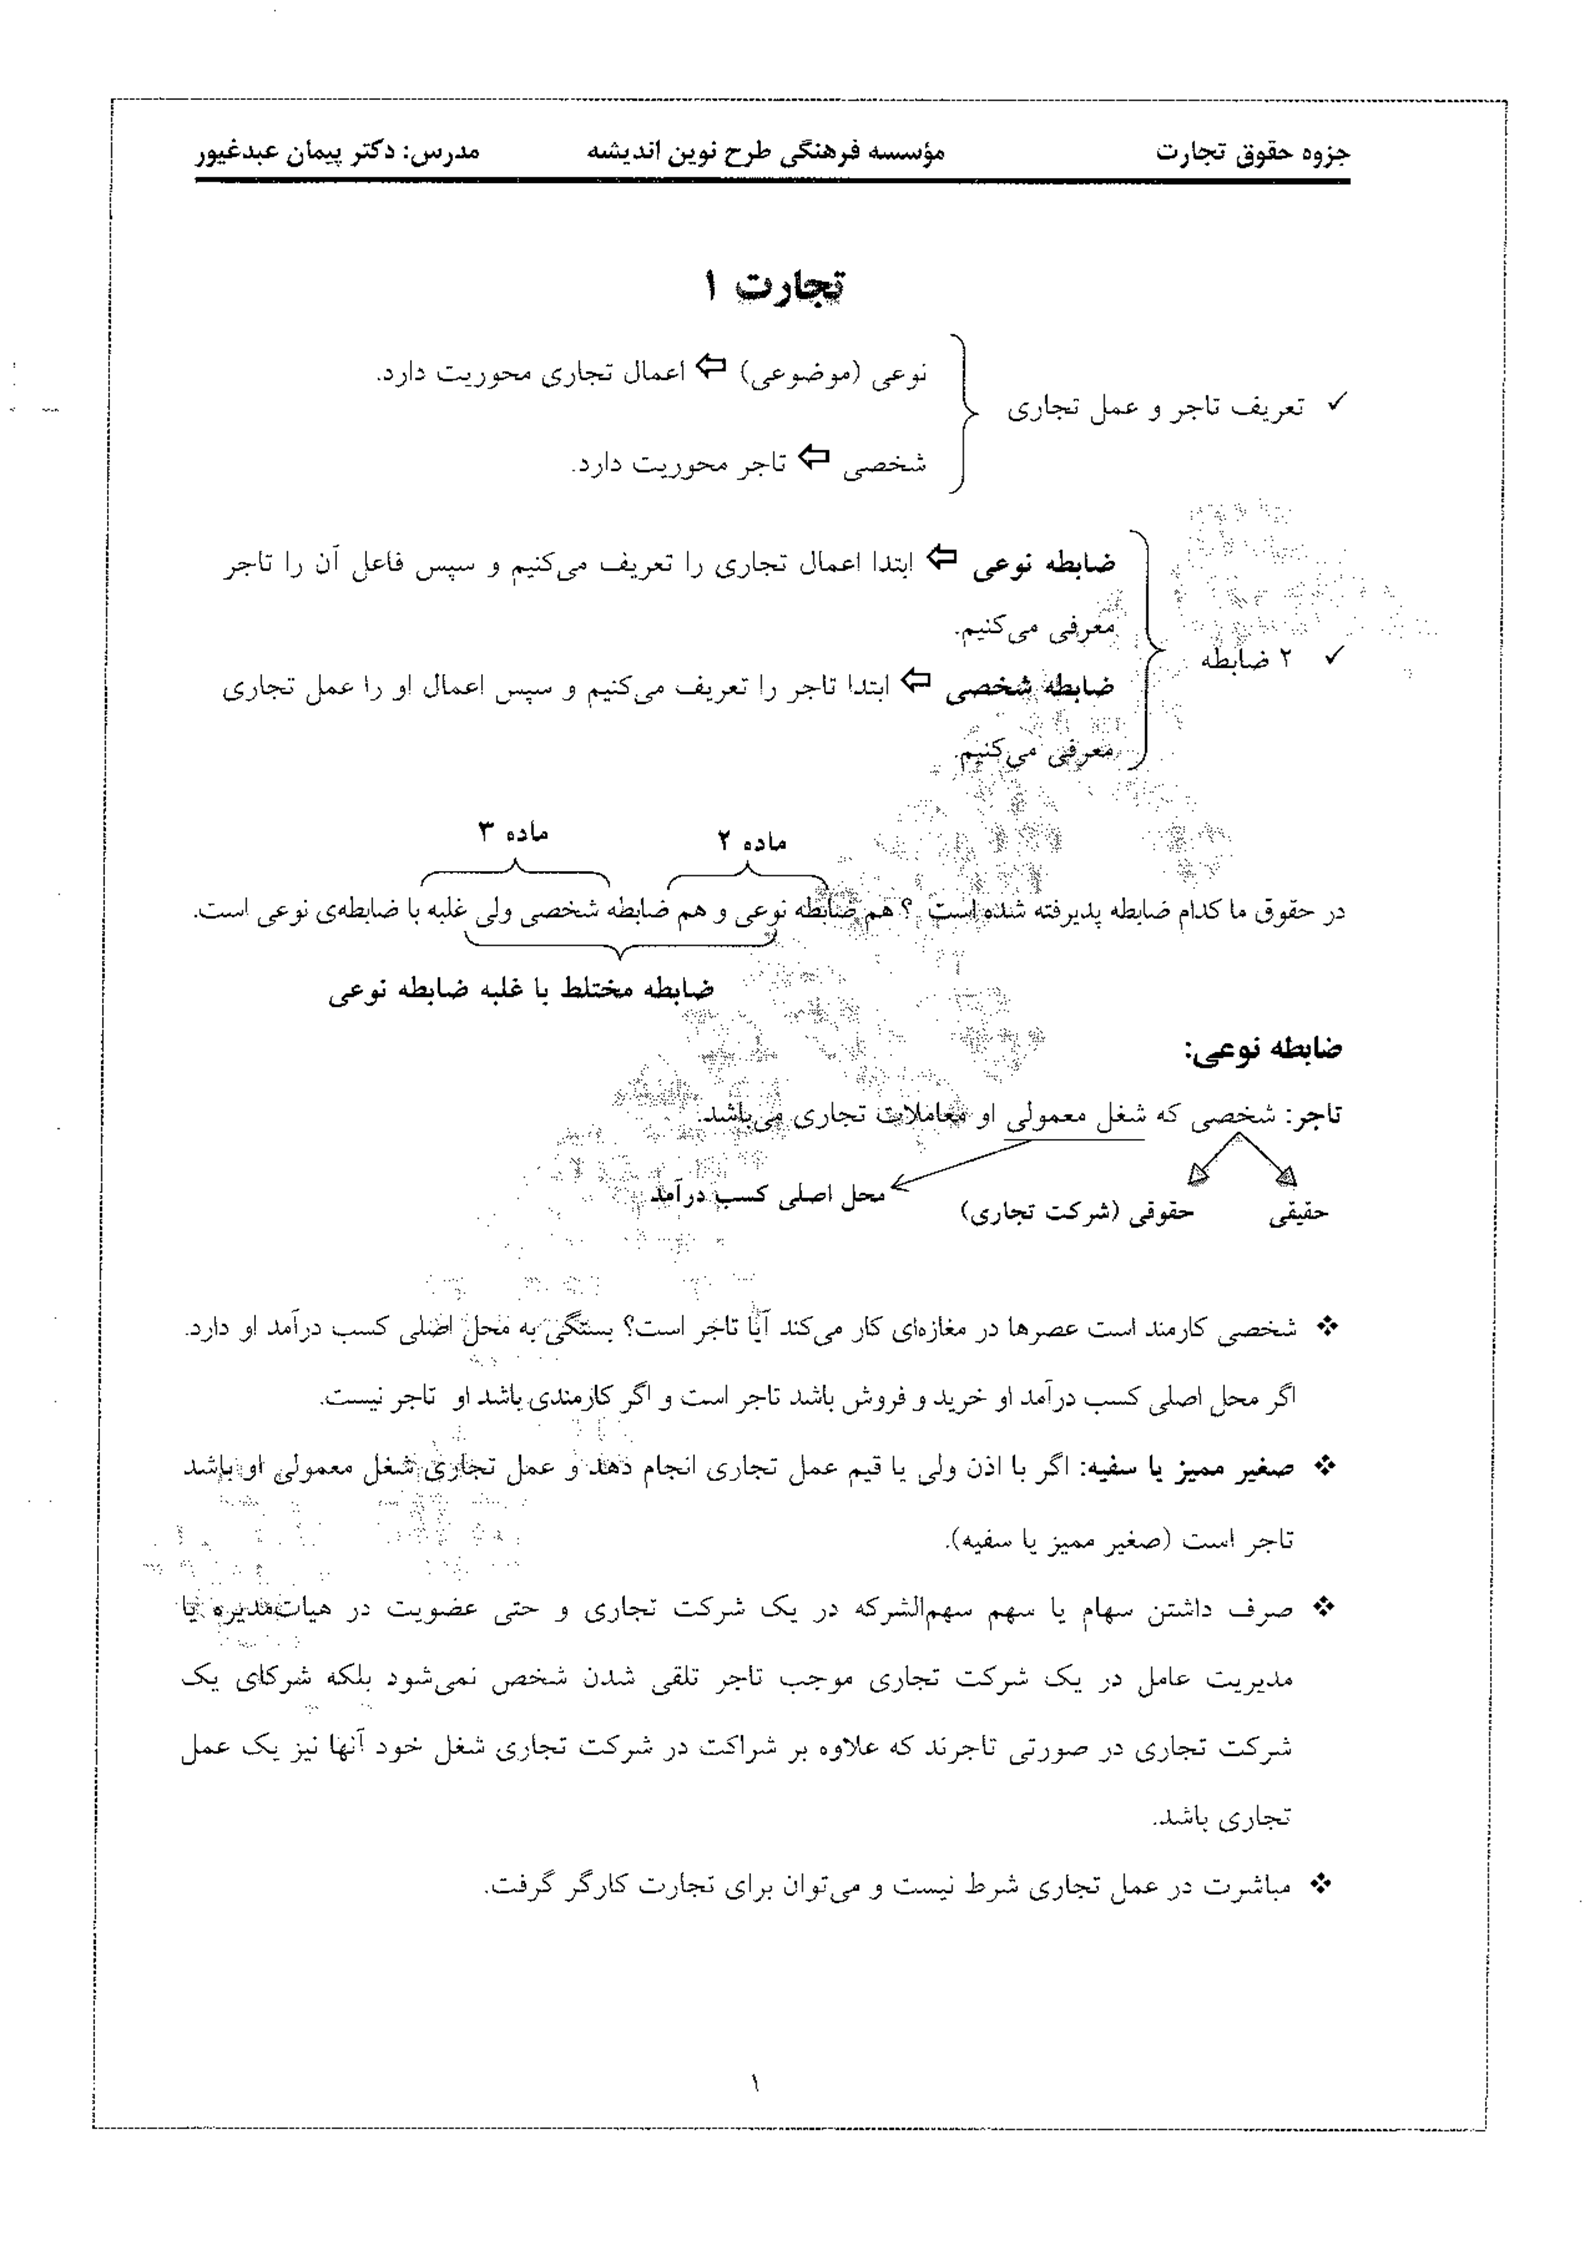 جزوه حقوق تجارت مؤسسه فرهنگی طرح نوین اندیشه مدرس: دکتر پیمان عبدغیور
تجارت ۱
✓ تعریف تاجر و عمل تجاری
نوعی (موضوعی) ⇦ اعمال تجاری محوریت دارد.
شخصی ⇦ تاجر محوریت دارد.
✓ ۲ ضابطه
ضابطه نوعی ⇦ ابتدا اعمال تجاری را تعریف می‌کنیم و سپس فاعل آن را تاجر
معرفی می‌کنیم.
ضابطه شخصی ⇦ ابتدا تاجر را تعریف می‌کنیم و سپس اعمال او را عمل تجاری
معرفی می‌کنیم.
ماده ۲ ماده ۳
در حقوق ما کدام ضابطه پذیرفته شده است ؟ هم ضابطه نوعی و هم ضابطه شخصی ولی غلبه با ضابطه‌ی نوعی است.
ضابطه مختلط با غلبه ضابطه نوعی
ضابطه نوعی:
تاجر: شخصی که شغل معمولی او معاملات تجاری می‌باشد.
حقیقی حقوقی (شرکت تجاری) محل اصلی کسب درآمد
❖ شخصی کارمند است عصرها در مغازه‌ای کار می‌کند آیا تاجر است؟ بستگی به محل اصلی کسب درآمد او دارد.
اگر محل اصلی کسب درآمد او خرید و فروش باشد تاجر است و اگر کارمندی باشد او تاجر نیست.
❖ صغیر ممیز یا سفیه: اگر با اذن ولی یا قیم عمل تجاری انجام دهد و عمل تجاری شغل معمولی او باشد
تاجر است (صغیر ممیز یا سفیه).
❖ صرف داشتن سهام یا سهم سهم‌الشرکه در یک شرکت تجاری و حتی عضویت در هیات‌مدیره یا
مدیریت عامل در یک شرکت تجاری موجب تاجر تلقی شدن شخص نمی‌شود بلکه شرکای یک
شرکت تجاری در صورتی تاجرند که علاوه بر شراکت در شرکت تجاری شغل خود آنها نیز یک عمل
تجاری باشد.
❖ مباشرت در عمل تجاری شرط نیست و می‌توان برای تجارت کارگر گرفت.
۱